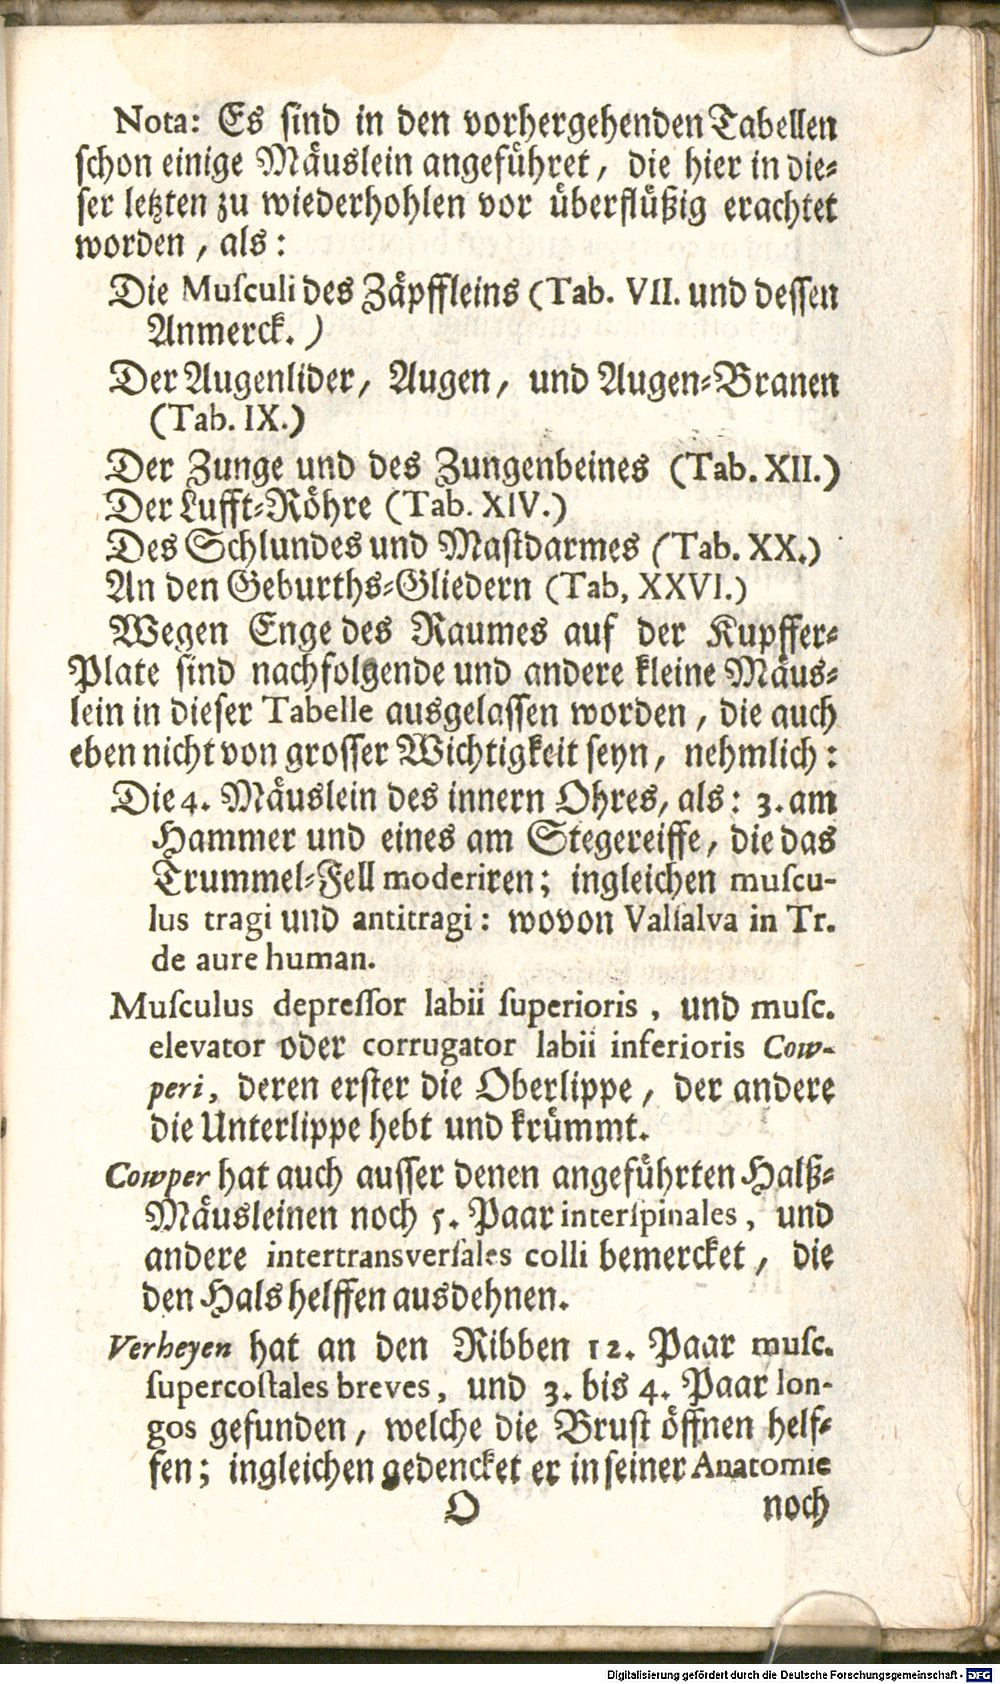 Nota: Es sind in den vorhergehenden Tabellen
schon einige Mäuslein angeführet, die hier in die-
ser letzten zu wiederhohlen vor überflüßig erachtet
worden, als:
Die Musculi des Zäpffleins (Tab. VII. und dessen
Anmerck.)
Der Augenlider, Augen, und Augen-Branen
(Tab. IX.)
Der Zunge und des Zungenbeines (Tab. XII.)
Der Lufft-Röhre (Tab. XIV.)
Des Schlundes und Mastdarmes (Tab. XX.)
An den Geburths-Gliedern (Tab, XXVI.)
Wegen Enge des Raumes auf der Kupffer-
Plate sind nachfolgende und andere kleine Mäus-
lein in dieser Tabelle ausgelassen worden, die auch
eben nicht von grosser Wichtigkeit seyn, nehmlich:
Die 4. Mäuslein des innern Ohres, als: 3. am
Hammer und eines am Stegereiffe, die das
Trummel-Fell moderiren; ingleichen muscu-
lus tragi und antitragi: wovon Valsalva in Tr.
de aure human.
Musculus depressor labii superioris, und musc.
elevator oder corrugator labii inferioris Cow-
peri, deren erster die Oberlippe, der andere
die Unterlippe hebt und krümmt.
Cowper hat auch ausser denen angeführten Halß-
Mäusleinen noch 5. Paar interspinales, und
andere intertransversales colli bemercket, die
den Hals helffen ausdehnen.
Verheyen hat an den Ribben 12. Paar musc.
supercostales breves, und 3. bis 4. Paar lon-
gos gefunden, welche die Brust öffnen helf-
fen; ingleichen gedencket er in seiner Anatomie
O noch
Digitalisierung gefördert durch die Deutsche Forschungsgemeinschaft - DFG